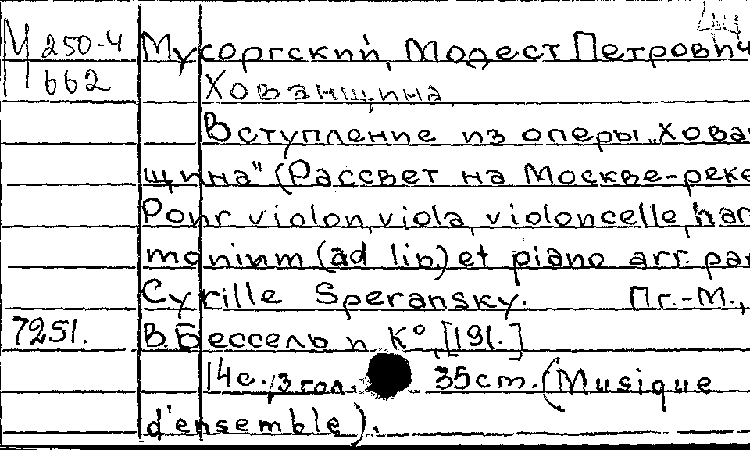 М 250-4 Мусоргский, Модест Петрович
662 Хованщина
Вступление из оперы „Хова
щина" (Рассвет на Москве-реке
Pour violon, viola, violoncelle, har
monium (ad lip) et piano arr. par
Cyrille Speransky. Пг.-М.,
7251. В. Бессель и К°, [191.]
14с., 3 гол. 35cm. (Musique
d'ensemble).